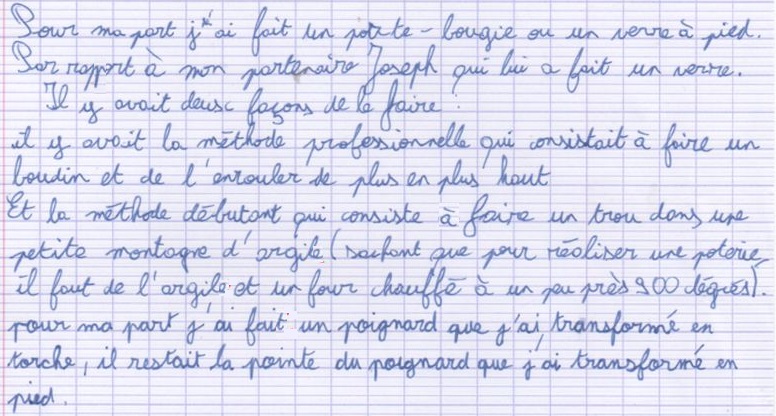 Pour ma part j'ai fait un porte-bougie ou un verre à pied.
Par rapport à mon partenaire Joseph qui lui a fait un verre.
Il y avait deusc façons de le faire :
il y avait la méthode professionnelle qui consistait à faire un
boudin et de l'enrouler de plus en plus haut
Et la méthode débutant qui consiste à faire un trou dans une
petite montagne d'argile (sachant que pour réaliser une poterie,
il faut de l'argile et un four chauffé à un peu près 900 dégrés).
pour ma part j'ai fait un poignard que j'ai transformé en
torche, il restait la pointe du poignard que j'ai transformé en
pied.